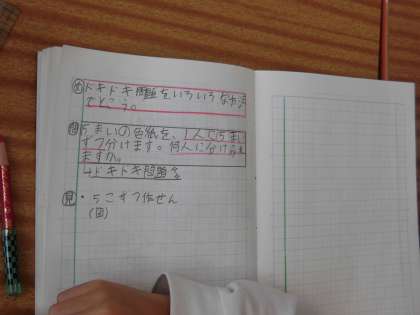 め ドキドキ問題をいろいろな方法
でとこう。
問 5まいの色紙を、1人で5まい
ずつ分けます。何人に分けられ
ますか。
↳ドキドキ問題を
見 ・5こずつ作せん
(図)